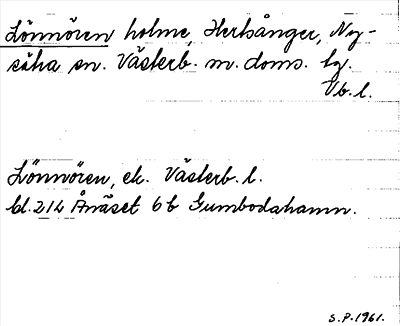 Lönnören holme, Herrsånger, Ny-
säha sn. Västerb. m. doms. lg.
Vb. l.
Lönnören, ek. Västerb. l.
bl. 214 Ånäset 6 b Gumbodahamn.
S.P. 1961.